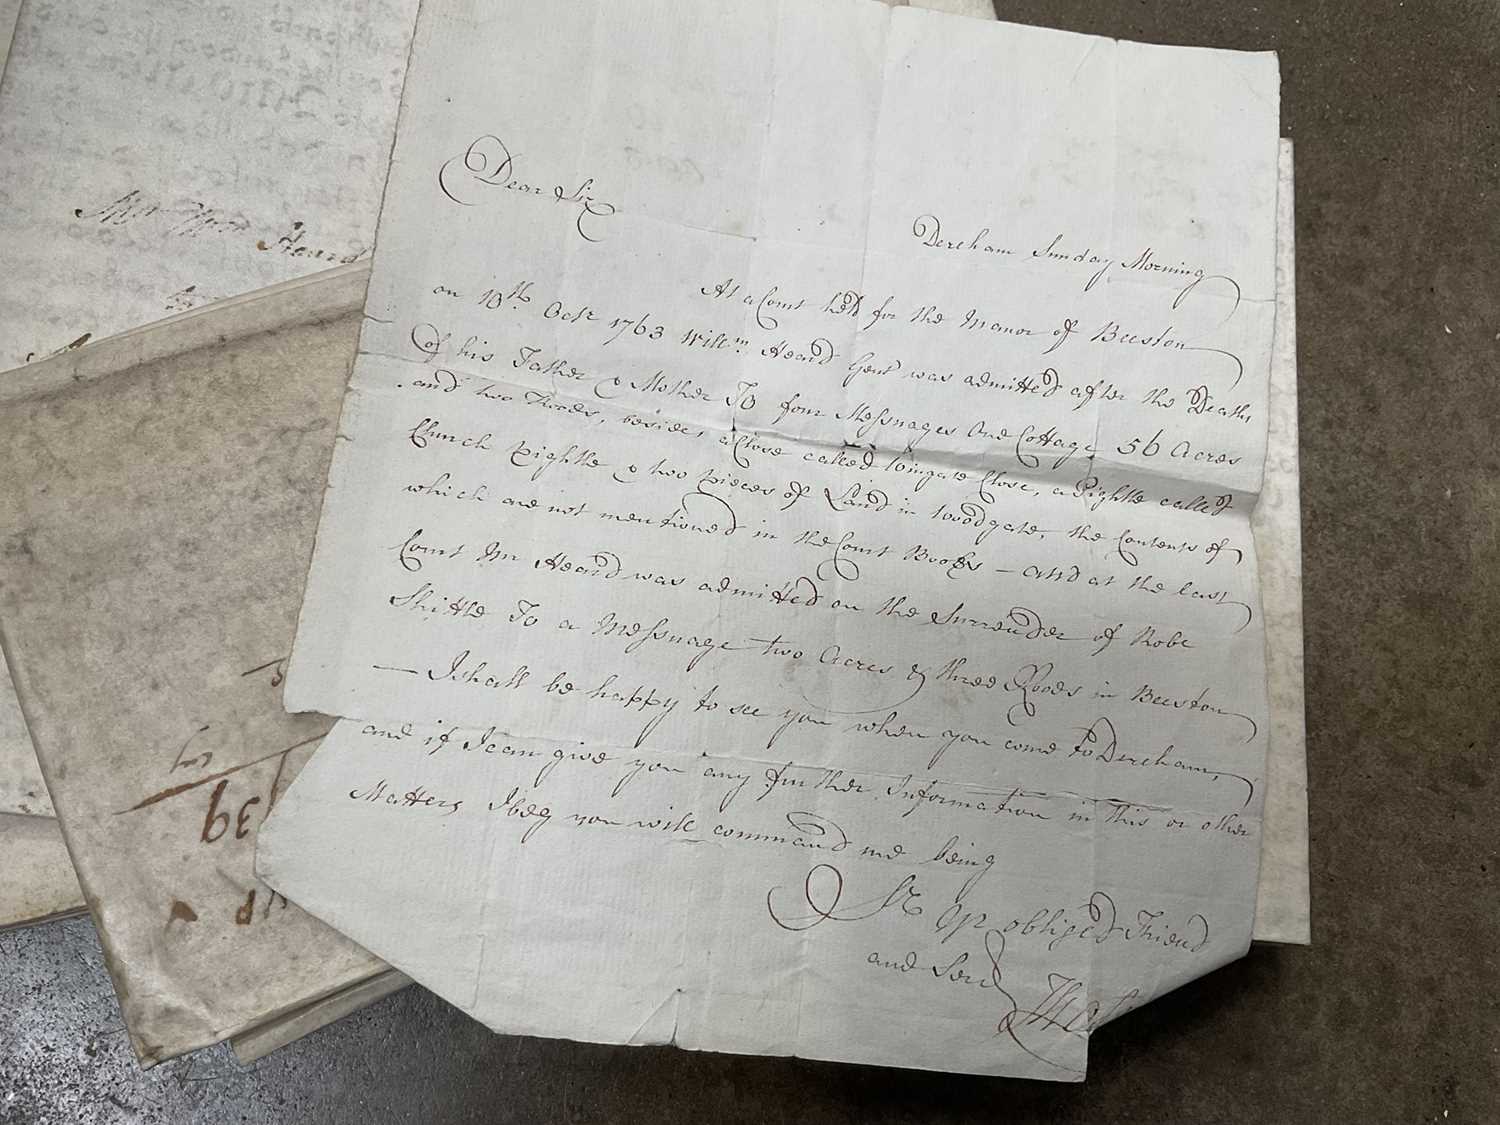 Dear Sir
Dereham Sunday Morning
At a Court held for the Manor of Beeston
on 10th. Octr. 1763 Willm. Heard Gent was admitted after the Deaths
of his Father & Mother To four Messuages One Cottage 56 Acres
and two Roods, besides a Close called Wingate Close, a Pightle called
Church Pightle & two pieces of Land in Woodgate, the Contents of
which are not mentioned in the Court Books – and at the last
Court Mr Heard was admitted on the Surrender of Robt
Shittle To a Messuage two Acres & three Roods in Beeston
— I shall be happy to see you when you come to Dereham,
and if I can give you any further Information in this or other
Matters I beg you will command me being
Sr Yr obliged Friend
and Servt
Mr Wm Heard
39